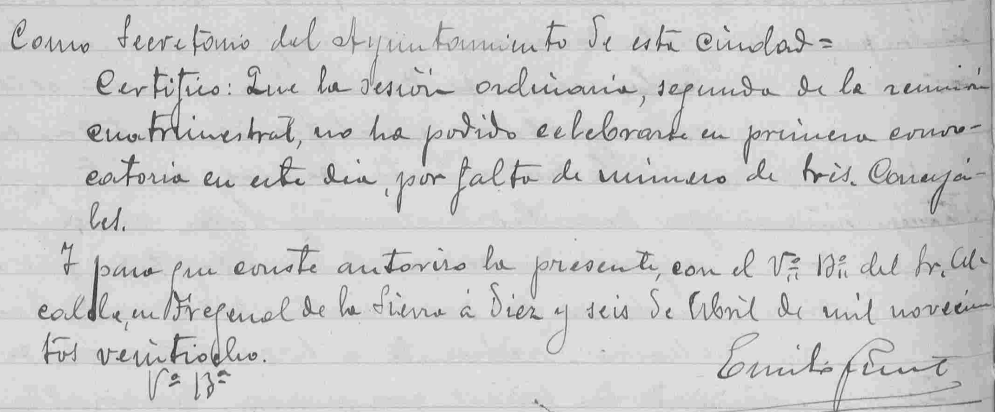 Como Secretario del Ayuntamiento de esta ciudad=
Certifico: Que la sesión ordinaria, segunda de la reunión
cuatrimestral, no ha podido celebrarse en primera convo-
catoria en este dia, por falta de número de tres. Conceja-
les.
Y para que conste autorizo la presente, con el Vº Bº del Sr. Al-
calde, en Fregenal de la Sierra á Diez y seis de Abril de mil novecien
tos veintiocho.
Vº Bº
Emilio